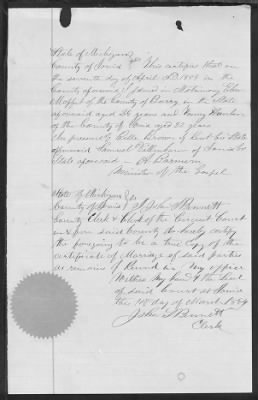 State of Michigan
County of Ionia This certifies that on
the seventh day of April AD 1858 in the
County aforesaid I joined in Matrimony
Moffet of the County of Barry in the State
aforesaid aged 26 years and
of the County of Ionia aged 22 years
In presence of Brown of Kent Co State
aforesaid Samuel of Ionia Co
State aforesaid
Minister of the Gospel
State of Michigan
County of Ionia I John Bennett
County Clerk & Clerk of the Circuit Court
in & for said County do hereby certify
the foregoing to be a true Copy of the
certificate of Marriage of said parties
as remains of Record in my office
Witness my hand & the Seal
of said Court at Ionia
this day of March
John Bennett
Clerk